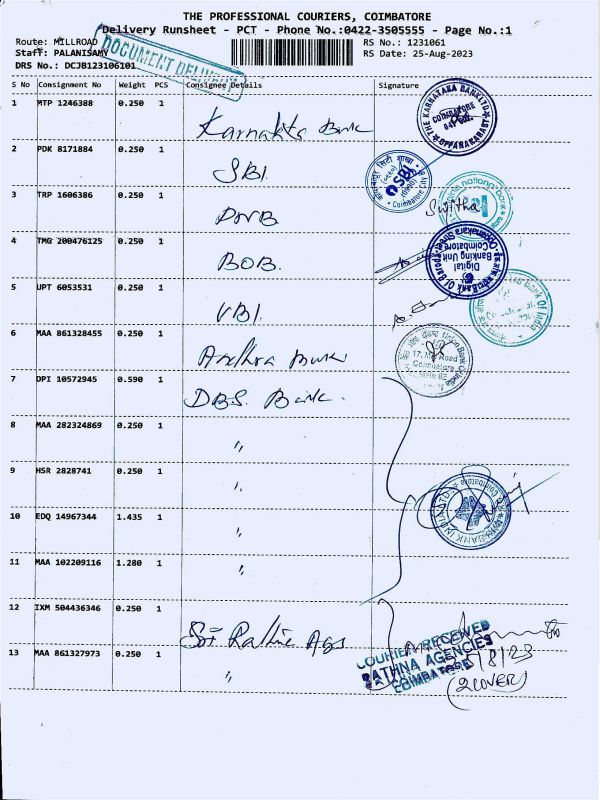 THE PROFESSIONAL COURIERS, COIMBATORE
Delivery Runsheet - PCT - Phone No.:0422-3505555 - Page No.:1
Route: MILLROAD
RS No.: 1231061
Staff: PALANISAMY
RS Date: 25-Aug-2023
DRS No.: DCJB123106101
DOCUMENT DELIVERY
S No Consignment No Weight PCS Consignee Details Signature
1 MTP 1246388 0.250 1 Karnakta Bank
THE KARNATAKA BANK LTD
COIMBATORE
OPPANAKARAST
2 PDK 8171884 0.250 1 SBI
SBI
Coimbatore City
3 TRP 1606386 0.250 1 PNB
national
Switha
4 TMG 200476125 0.250 1 BOB
Bank Of Baroda
Digital
Banking Unit
Coimbatore
5 UPT 6053531 0.250 1 UBI
Bank Of India
6 MAA 861328455 0.250 1 Andhra Bank
Union Bank Of India
17, Mill Road
Coimbatore
7 DPI 10572945 0.590 1 DBS Bank
8 MAA 282324869 0.250 1 "
9 HSR 2828741 0.250 1 "
BANK INDIA LTD
Coimbatore
10 EDQ 14967344 1.435 1 "
11 MAA 102209116 1.280 1 "
12 IXM 504436346 0.250 1 Sri Rathna Ags
COURIER RECEIVED
RATHNA AGENCIES
COIMBATORE
13 MAA 861327973 0.250 1 "
/8/23
(2 COVER)